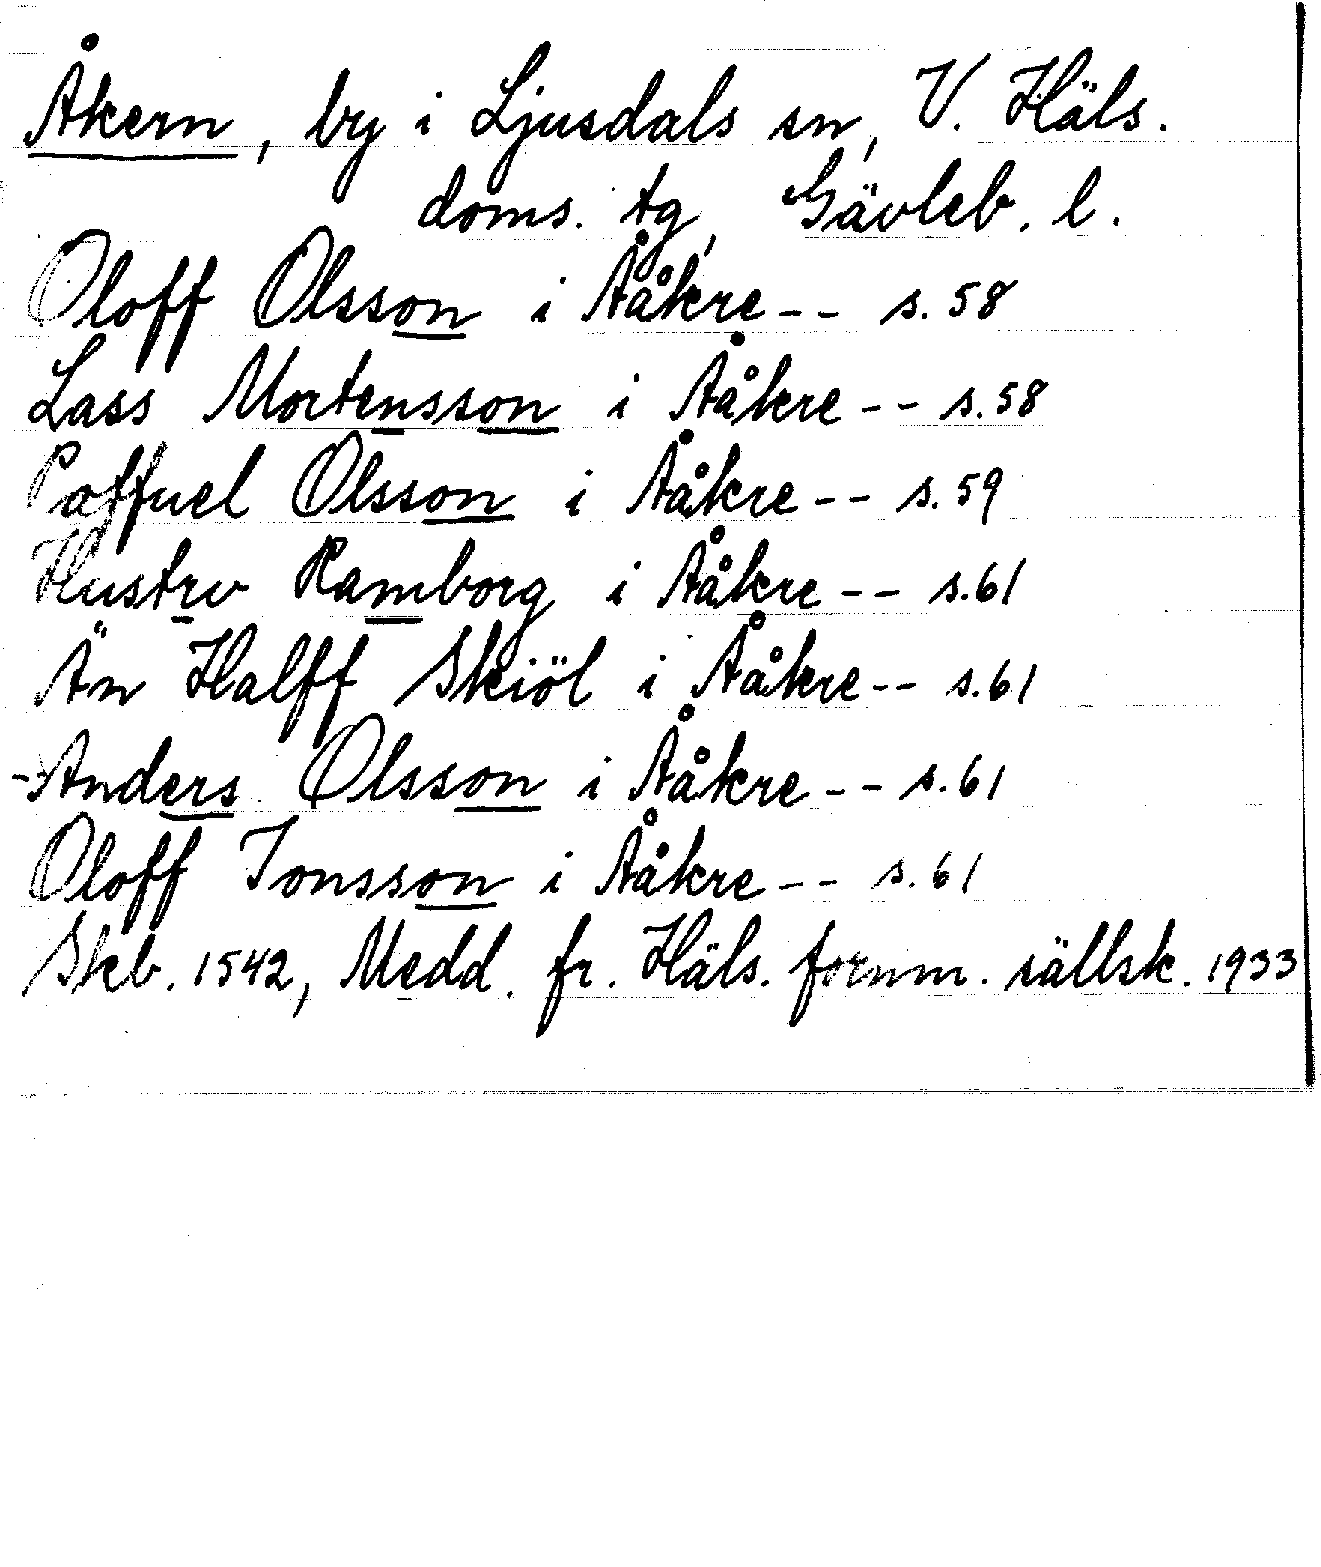 Åkern, by i Ljusdals sn, V. Häls.
doms. tg, Gävleb. l.
Oloff Olsson i Ååkre -- s. 58
Lass Mortensson i Ååkre -- s. 58
Paffuel Olsson i Ååkre -- s. 59
Hustrv Ramborg i Ååkre -- s. 61
Än Halff Skiöl i Ååkre -- s. 61
-Anders Olsson i Ååkre -- s. 61
Oloff Jonsson i Ååkre -- s. 61
Skb. 1542, Medd. fr. Häls. fornm. sällsk. 1933